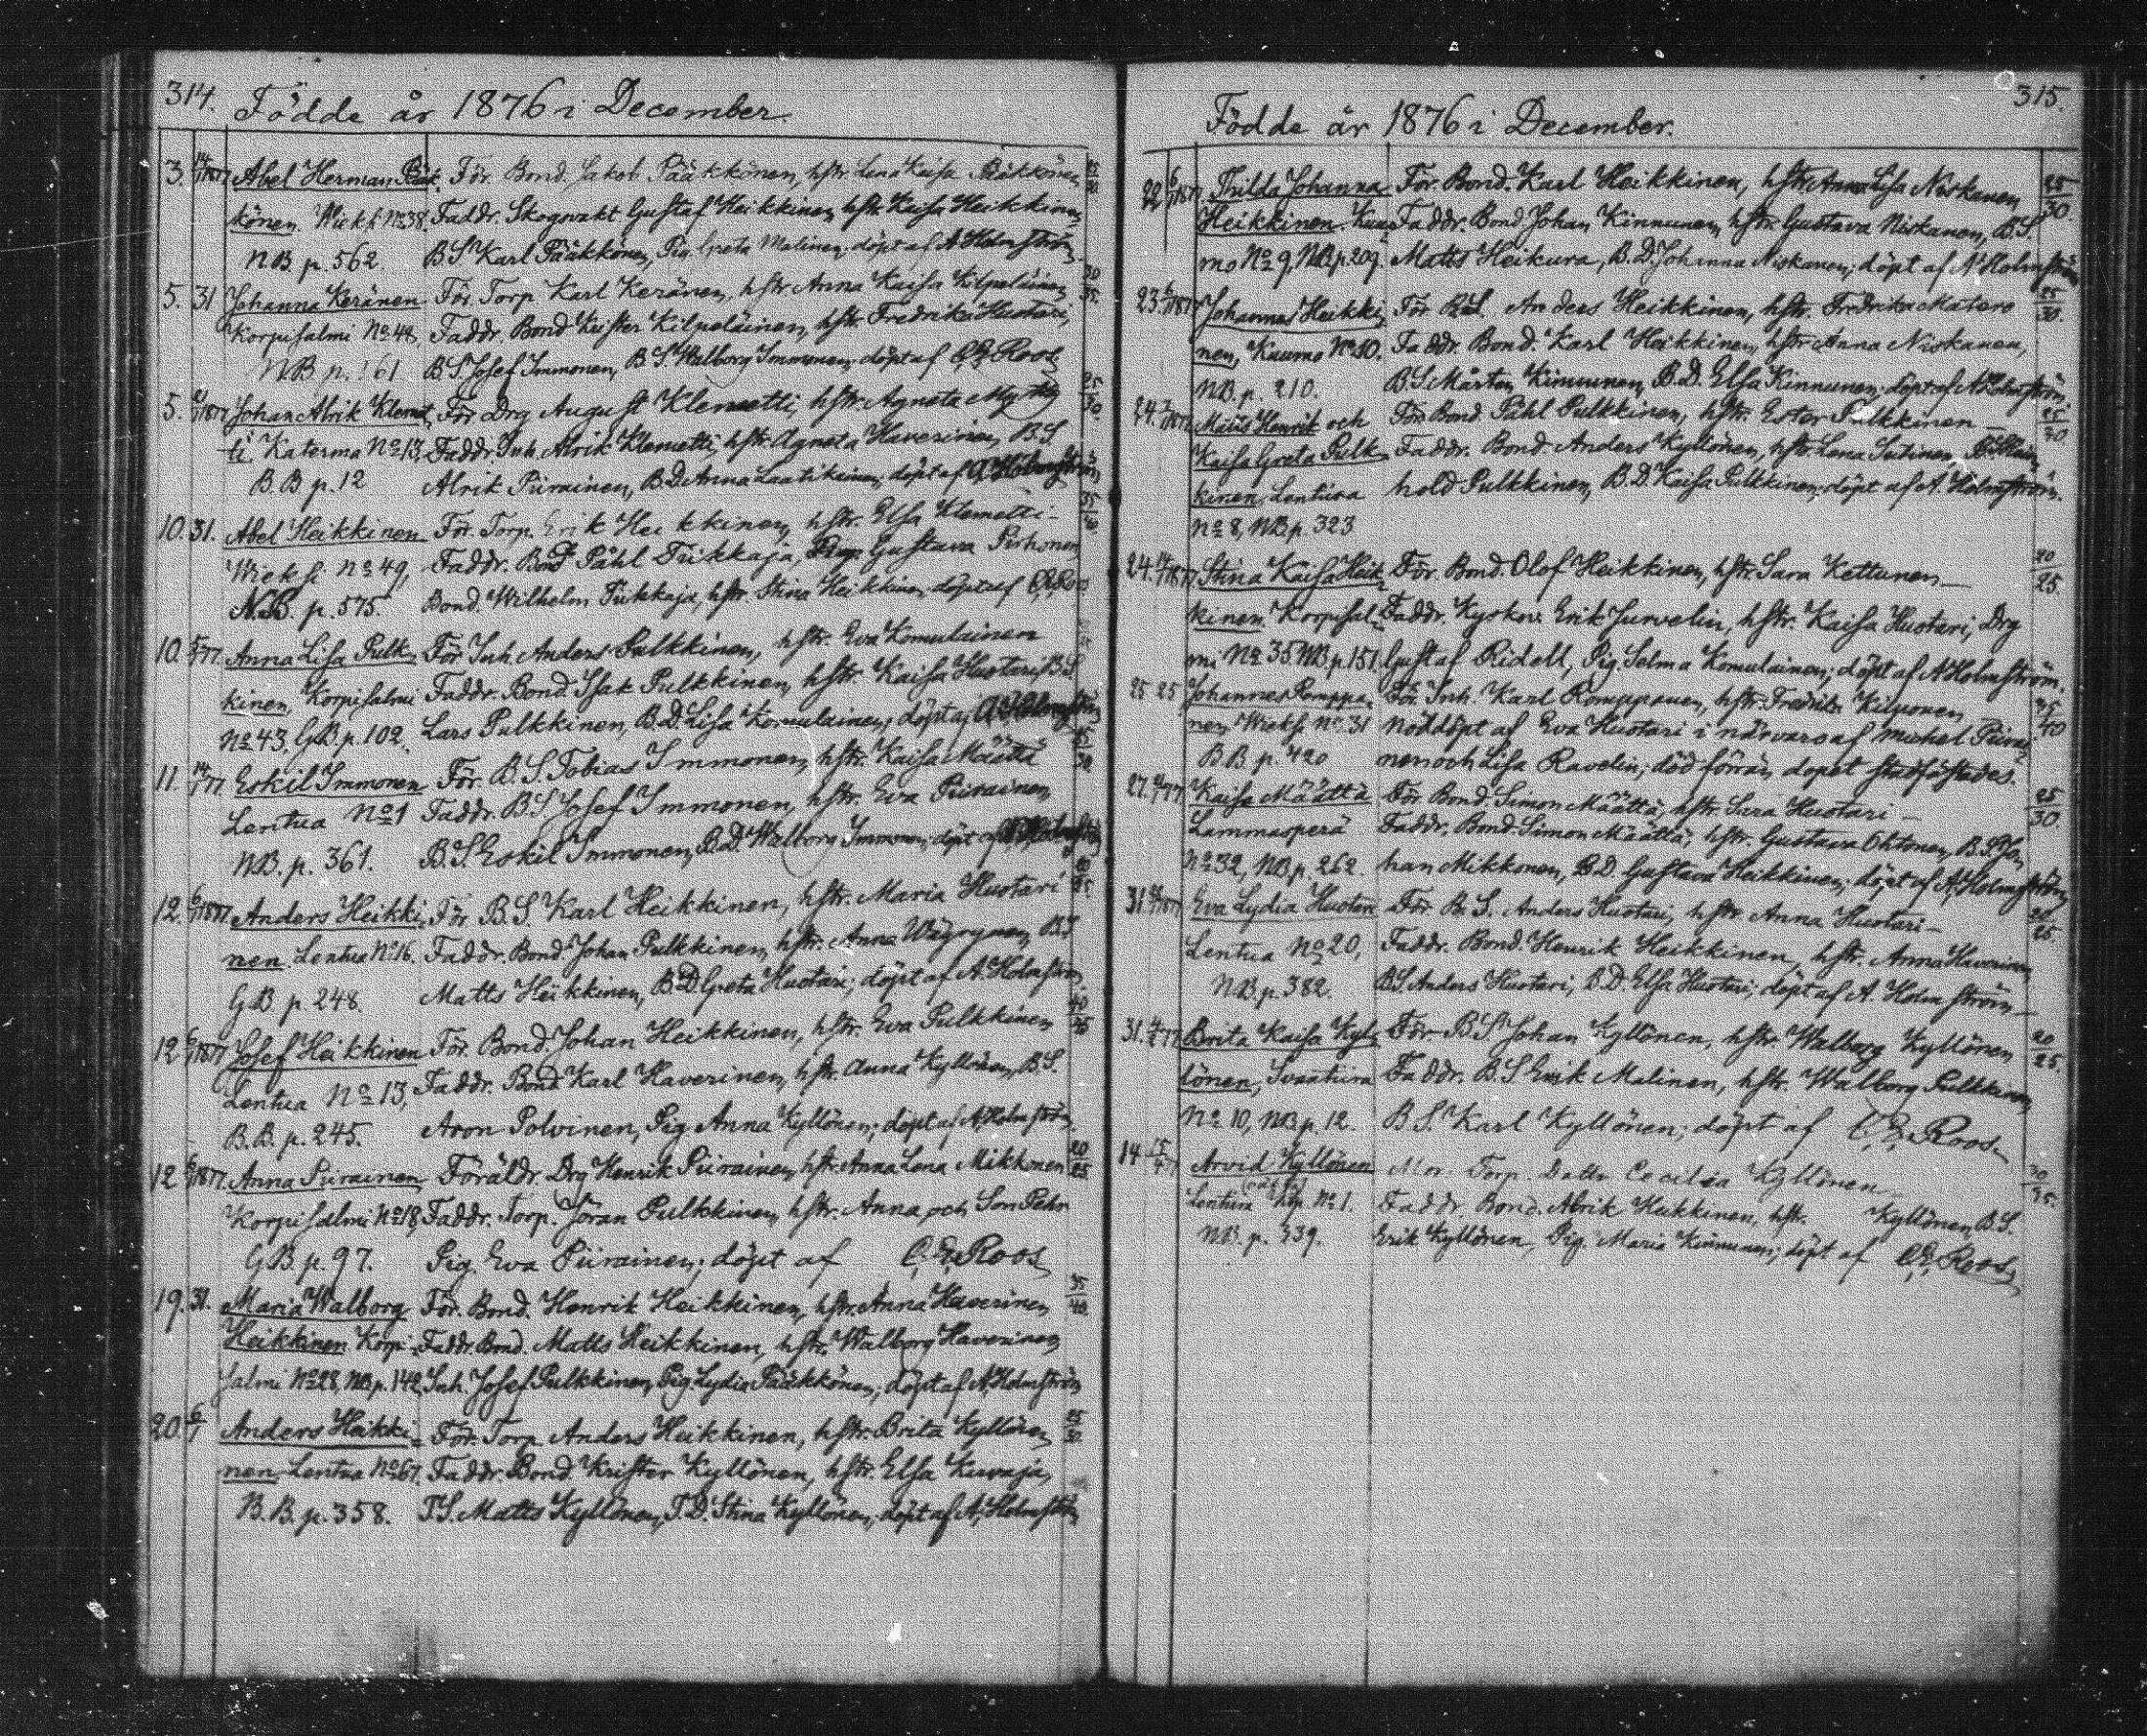 314. Födde år 1876 i December.
3. 14/1 1877 Abel Herman Pääk- För. Bond. Jakob Pääkkönen, hstr. Lena Kaisa Pääkkönen
könen Wieksi No 38. Faddr. Skogsvakt Gustaf Heikkinen hstr. Kaisa Heikkinen
NB. p. 562. B.S. Karl Pääkkönen, Pig. Greta Malinen; döpt af A. Holmström
5. 31 Johanna Keränen För. Torp. Karl Keränen, hstr. Anna Kaisa Kilpeläinen 30/35.
Korpisalmi No 48, Faddr. Bond. Krister Kilpeläinen, hstr. Fredrika Huotari,
NB. p. 161 B.S. Josef Immonen, B.S. Walborg Immonen, döpt af C. E. Roos
5. /1877 Johan Alrik Klemet- För. Drg August Klemetti, hstr. Agneta 25/30
ti, Katerma No 13, Faddr. Inh. Alrik Klemetti, hstr. Agneta Haverinen B.S
B.B p. 12 Alrik Piirainen, B.D. Anna Laatikainen, döpt af A. Holmström
10. 31. Abel Heikkinen För. Torp. Erik Heikkinen, hstr. Elsa Klemetti- 35/40
Wieksi No 49, Faddr. Bond Påhl Tiikkaja, Gustava Pirhonen
N.B. p. 575. Bond. Wilhelm Tiikkaja, hstr. Stina Heikkinen, döpt af C. E. Roos
10. 5/1 77. Anna Lisa Pulk- För. Inh. Anders Pulkkinen, hstr. Eva Komulainen
kinen, Korpisalmi Faddr. Bond. Isak Pulkkinen, hstr. Kaisa Huotari, B.S.
No 43, GB. p. 102. Lars Pulkkinen, B.D. Lisa Komulainen; döpt af A. Holmström
11. 14/1 77 Eskil Immonen För. B. S. Tobias Immonen, hstr. Kaisa Määttä
Lentua No 1 Faddr. B.S. Josef Immonen, hstr. Eva Piirainen,
NB. p. 361. B.S. Eskil Immonen, B.D. Walborg Immonen, döpt af A. Holmström
12. 6/1 1877 Anders Heikki- För. B.S. Karl Heikkinen, hstr. Maria Huotari
nen. Lentua No 16. Faddr. Bond. Johan Pulkkinen, hstr. Anna Wäyrynen, B.S
GB p. 248. Matts Heikkinen, B.D. Greta Huotari; döpt af A. Holmström.
12 6/1 1877 Josef Heikkinen För. Bond. Johan Heikkinen, hstr. Eva Pulkkinen 40/45
Lentua No 13, Faddr. Bond Karl Haverinen, hstr. Anna Kyllönen, B.S.
B. B. p. 245. Aron Polvinen, Pig Anna Kyllönen; döpt af A. Holmström.
12 6/1 1877. Anna Piirainen Föräldr. Drg Henrik Piirainen, hstr. Anna Lena Mikkonen 20/25
Korpisalmi No 18, Faddr. Torp. Jöran Pulkkinen, hstr. Anna och Son Pehr
GB p. 97. Pig. Eva Piirainen; döpt af C. E. Roos
19. 31. Maria Walborg För. Bond. Henrik Heikkinen, hstr. Anna Haverinen 35/40
Heikkinen Korpi- Faddr. Bond. Matts Heikkinen, hstr. Walborg Haverinen,
salmi No 28, NB. p. 142, Inh. Josef Pulkkinen, Pig. Lydia Pääkkönen; döpt af A. Holmström
20. 6/1 Anders Heikki- För. Torp. Anders Heikkinen, hstr. Brita Kyllönen
nen Lentua No 67, Faddr. Bond. Krister Kyllönen, hstr. Elsa Kuvaja,
B. B. p. 358. T.S. Matts Kyllönen, T.D. Stina Kyllönen, döpt af A. Holmström
315.
Födde år 1876 i December.
22 6/1 1877. Thilda Johanna För. Bond. Karl Heikkinen, hstr. Anna Lisa Niskanen 25/30.
Heikkinen. Kuu- Faddr. Bond Johan Kinnunen, hstr. Gustava Niskanen, B.S.
mo No 9, NB. p. 209. Matts Heikura, B.D. Johanna Niskanen; döpt af A. Holmström
23. /1877 Johannes Heikki- För B.S. Anders Heikkinen, hstr. Fredrika Matero 25/30.
nen, Kuumo No 10. Faddr. Bond. Karl Heikkinen, hstr. Anna Niskanen,
NB. p. 210. B.S. Mårten Kinnunen, B.D. Elsa Kinnunen, döpt af A. Holmström.
24. /1877 Matts Henrik och För. Bond Påhl Pulkkinen, hstr. Ester Pulkkinen — 25/30
Kaisa Greta Pulk- Faddr. Bond. Anders Kyllönen, hstr. Lena Sutinen, B.S. Rein-
kinen, Lentiira hold Pulkkinen, B.D. Kaisa Pulkkinen; döpt af A. Holmström.
No 8, NB p. 323
24. 14/1 1877 Stina Kaisa Heik- För. Bond. Olof Heikkinen, hstr. Sara Kettunen — 20/25.
kinen Korpisal- Faddr. Kyrkov. Erik Survelin, hstr. Kaisa Huotari, Drg
mi No 35 NB p. 151 Gustaf Ridell, Pig. Selma Komulainen; döpt af A. Holmström.
25 25 Johannes Romppa- För. Inh. Karl Romppanen, hstr. Fredrika Kilponen 35/40
nen Wieksi No 31 nöddöpt af Eva Huotari i närvaro af Michel Piirai-
B B p. 420 nen och Lisa Ravelin; död förrän dopet stadfästades.
27. /77 Kaisa Määttä För. Bond Simon Määttä, hstr. Sara Huotari — 25/30.
Lammasperä Faddr. Bond. Simon Määttä, hstr. Gustava Ohtonen, B.S. Jo-
No 32, NB p. 262. han Mikkonen, B.D. Gustava Heikkinen; döpt af A. Holmström
31. /1877 Eva Lydia Huotari För. B. S. Anders Huotari, hstr. Anna Huotari — 20/25.
Lentua No 20, Faddr. Bond. Henrik Heikkinen, hstr. Anna Haverinen
NB. p. 382. B.S. Anders Huotari, B.D. Elsa Huotari; döpt af A. Holmström —
31. /77 Brita Kaisa Kyl- För. B.S. Johan Kyllönen, hstr. Walborg Kyllönen 20/25.
lönen, Iivantiira Faddr. B.S. Erik Malinen, hstr. Walborg Pulkkinen,
No 10, NB p. 12. B.S. Karl Kyllönen; döpt af C. E. Roos
14 15/4 77 Arvid Kyllönen Mor: Torp. Dottr Cecilia Kyllönen — 30/35.
Lentiira No 1. Faddr. Bond. Alrik Heikkinen, hstr. Kyllönen, B.S.
NB. p. 339. Erik Kyllönen, Pig. Maria Kinnunen; döpt af C. E. Roos